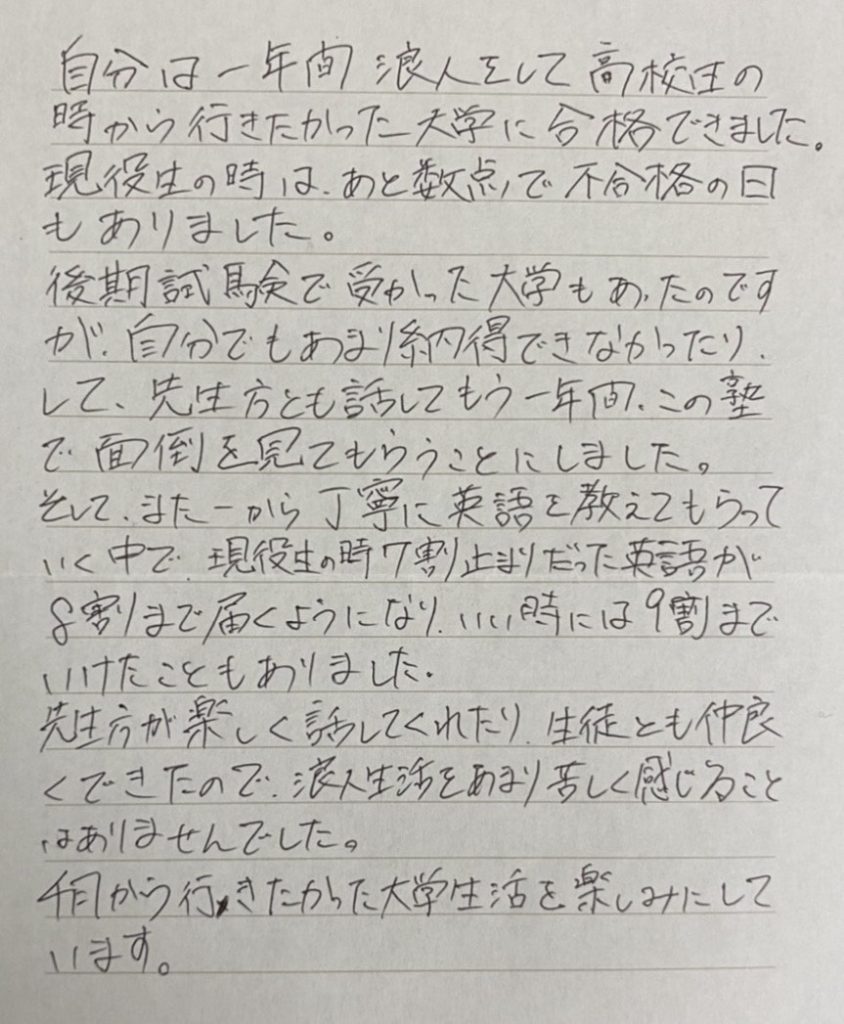 自分は一年間浪人をして高校生の
時から行きたかった大学に合格できました。
現役生の時は、あと数点で不合格の日
もありました。
後期試験で受かった大学もあったのです
が、自分でもあまり納得できなかったり、
して、先生方とも話してもう一年間、この塾
で面倒を見てもらうことにしました。
そして、また一から丁寧に英語を教えてもらって
いく中で、現役生の時7割止まりだった英語が
8割りまで届くようになり、いい時には9割まで
いけたこともありました。
先生方が楽しく話してくれたり、生徒とも仲良
くできたので、浪人生活をあまり苦しく感じること
はありませんでした。
4月から行きたかった大学生活を楽しみにして
います。